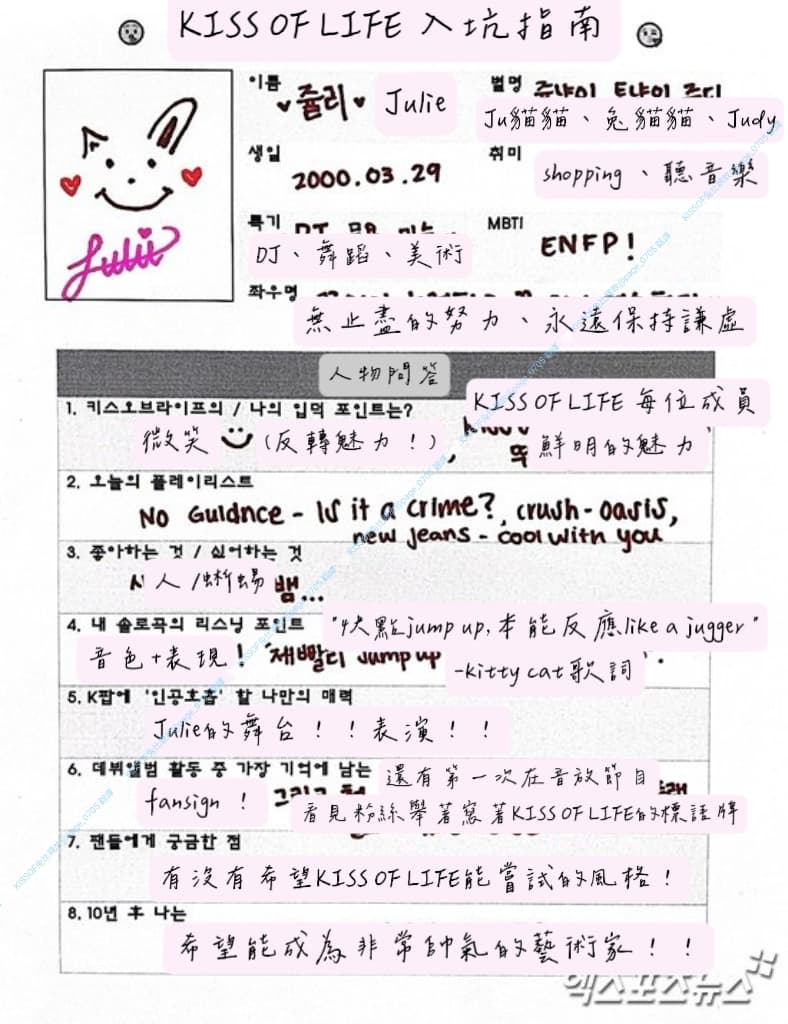 KISS OF LIFE 入坑指南
이름
쥴리
Julie
별명
Ju貓貓、兔貓貓、Judy
생일
2000.03.29
취미
shopping、聽音樂
특기
DJ、舞蹈、美術
MBTI
ENFP!
좌우명
無止盡的努力、永遠保持謙虛
人物問答
1. 키스오브라이프의 / 나의 입덕 포인트는?
KISS OF LIFE 每位成員
微笑 (反轉魅力!)
鮮明的魅力
2. 오늘의 플레이리스트
No Guidnce - Is it a crime?, crush - oasis,
new jeans - cool with you
3. 좋아하는 것 / 싫어하는 것
人/蜥蜴 뱀...
4. 내 솔로곡의 리스닝 포인트
"快點jump up,本能反應like a jugger"
音色+表現! "재빨리 Jump up
-kitty cat歌詞
5. K팝에 '인공호흡' 할 나만의 매력
Julie的舞台!!表演!!
6. 데뷔앨범 활동 중 가장 기억에 남는
還有第一次在音放節目
fansign!
看見粉絲舉著寫著KISS OF LIFE的標語牌
7. 팬들에게 궁금한 점
有沒有希望KISS OF LIFE能嘗試的風格!
8. 10년 후 나는
希望能成為非常帥氣的藝術家!!
엑스포츠뉴스